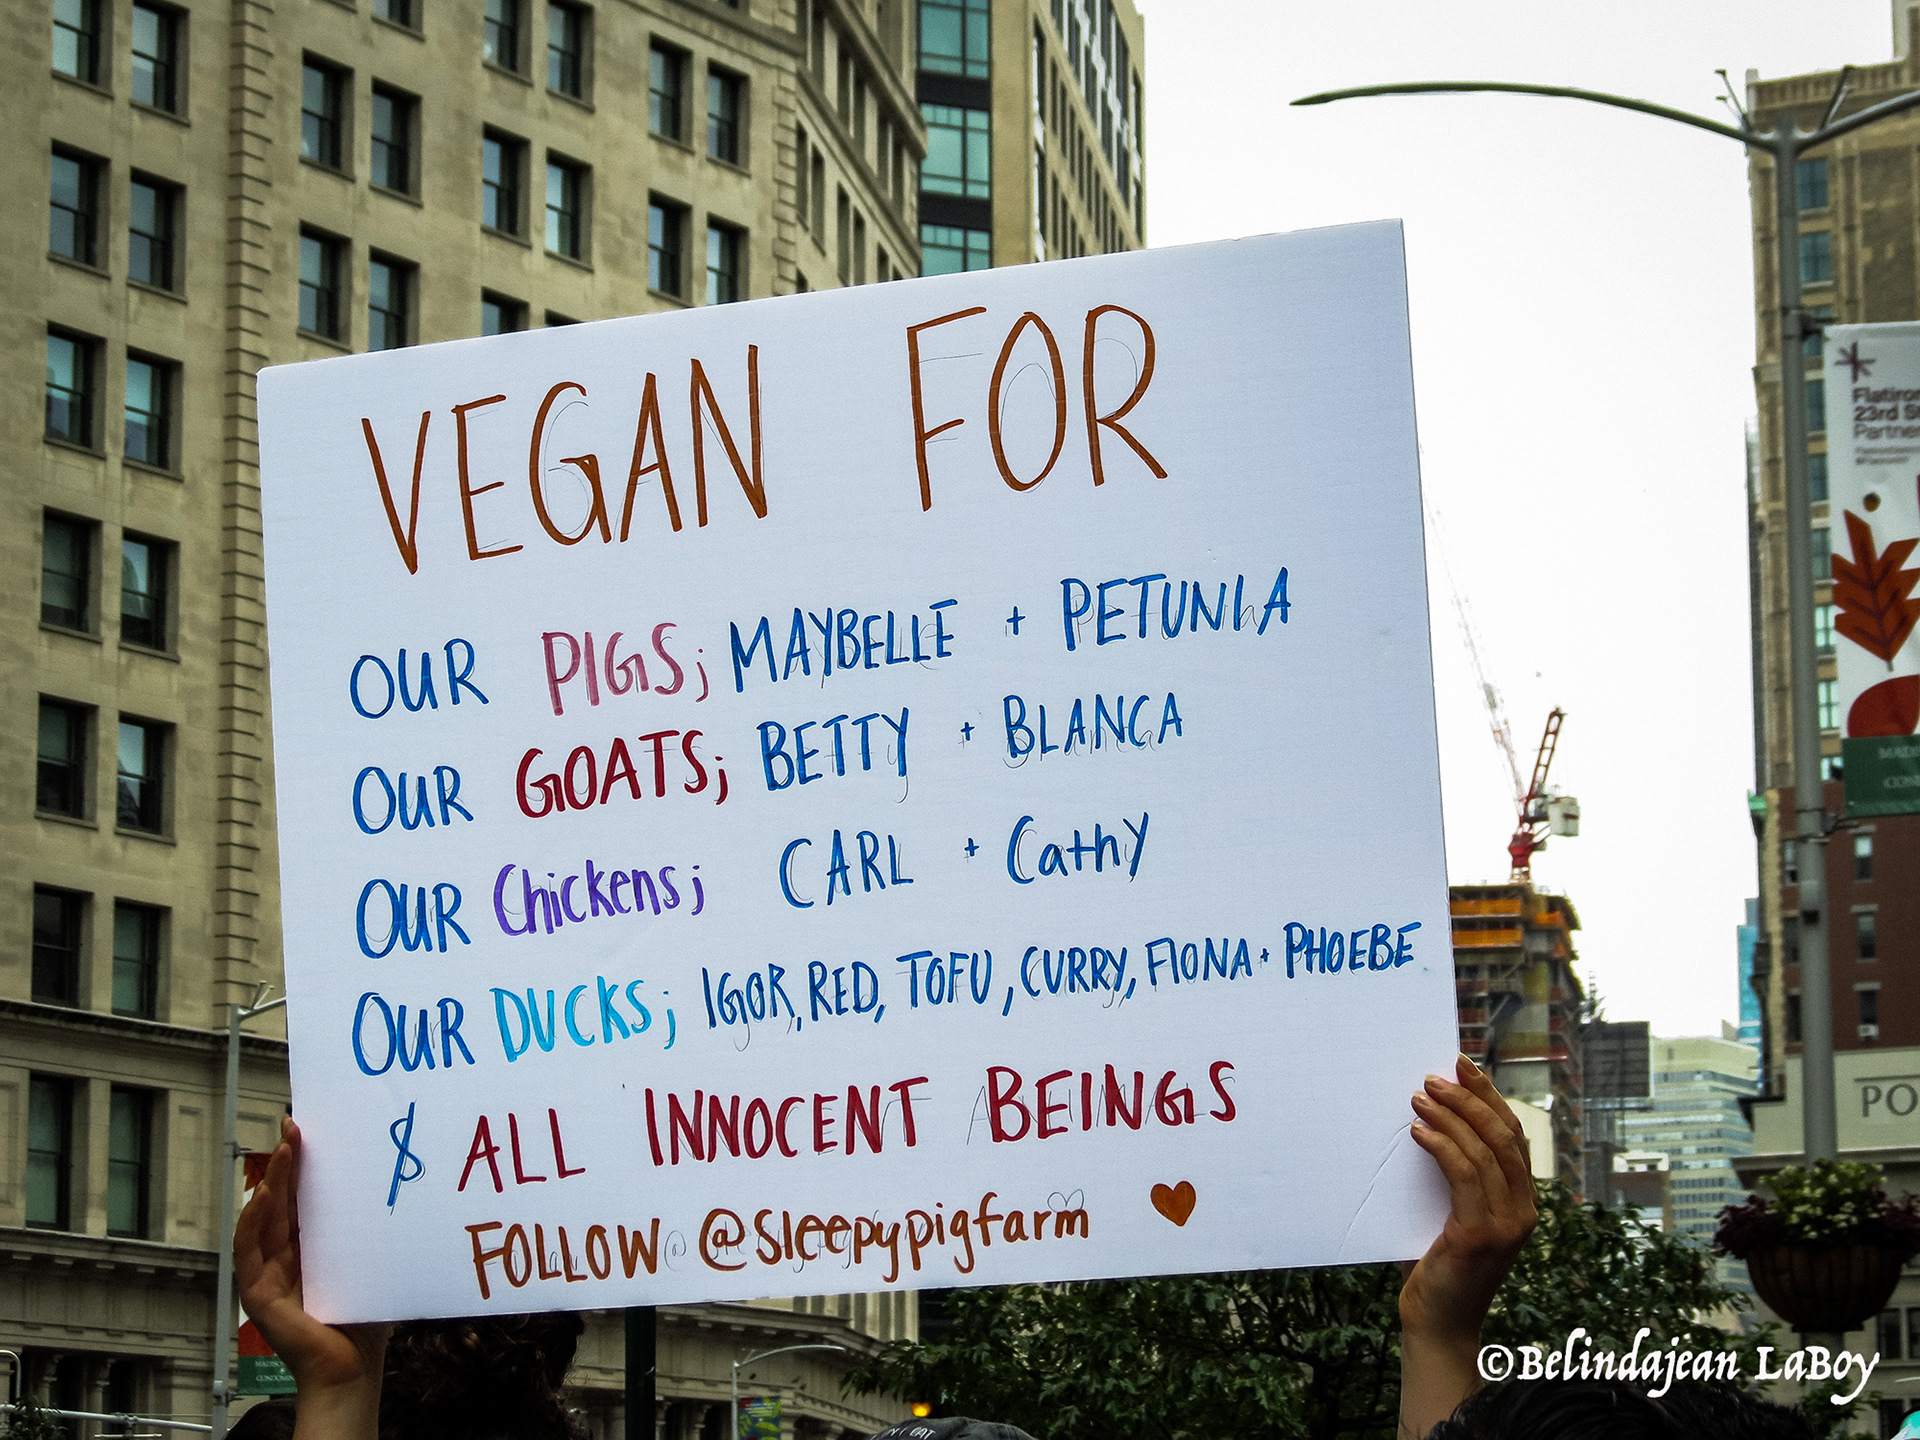 VEGAN FOR
OUR PIGS; MAYBELLE + PETUNIA
OUR GOATS; BETTY + BLANCA
OUR Chickens; CARL + Cathy
OUR DUCKS; IGOR, RED, TOFU, CURRY, FIONA + PHOEBE
& ALL INNOCENT BEINGS
FOLLOW @sleepypigfarm
Flatiron
23rd St
Partner
PO
©Belindajean LaBoy